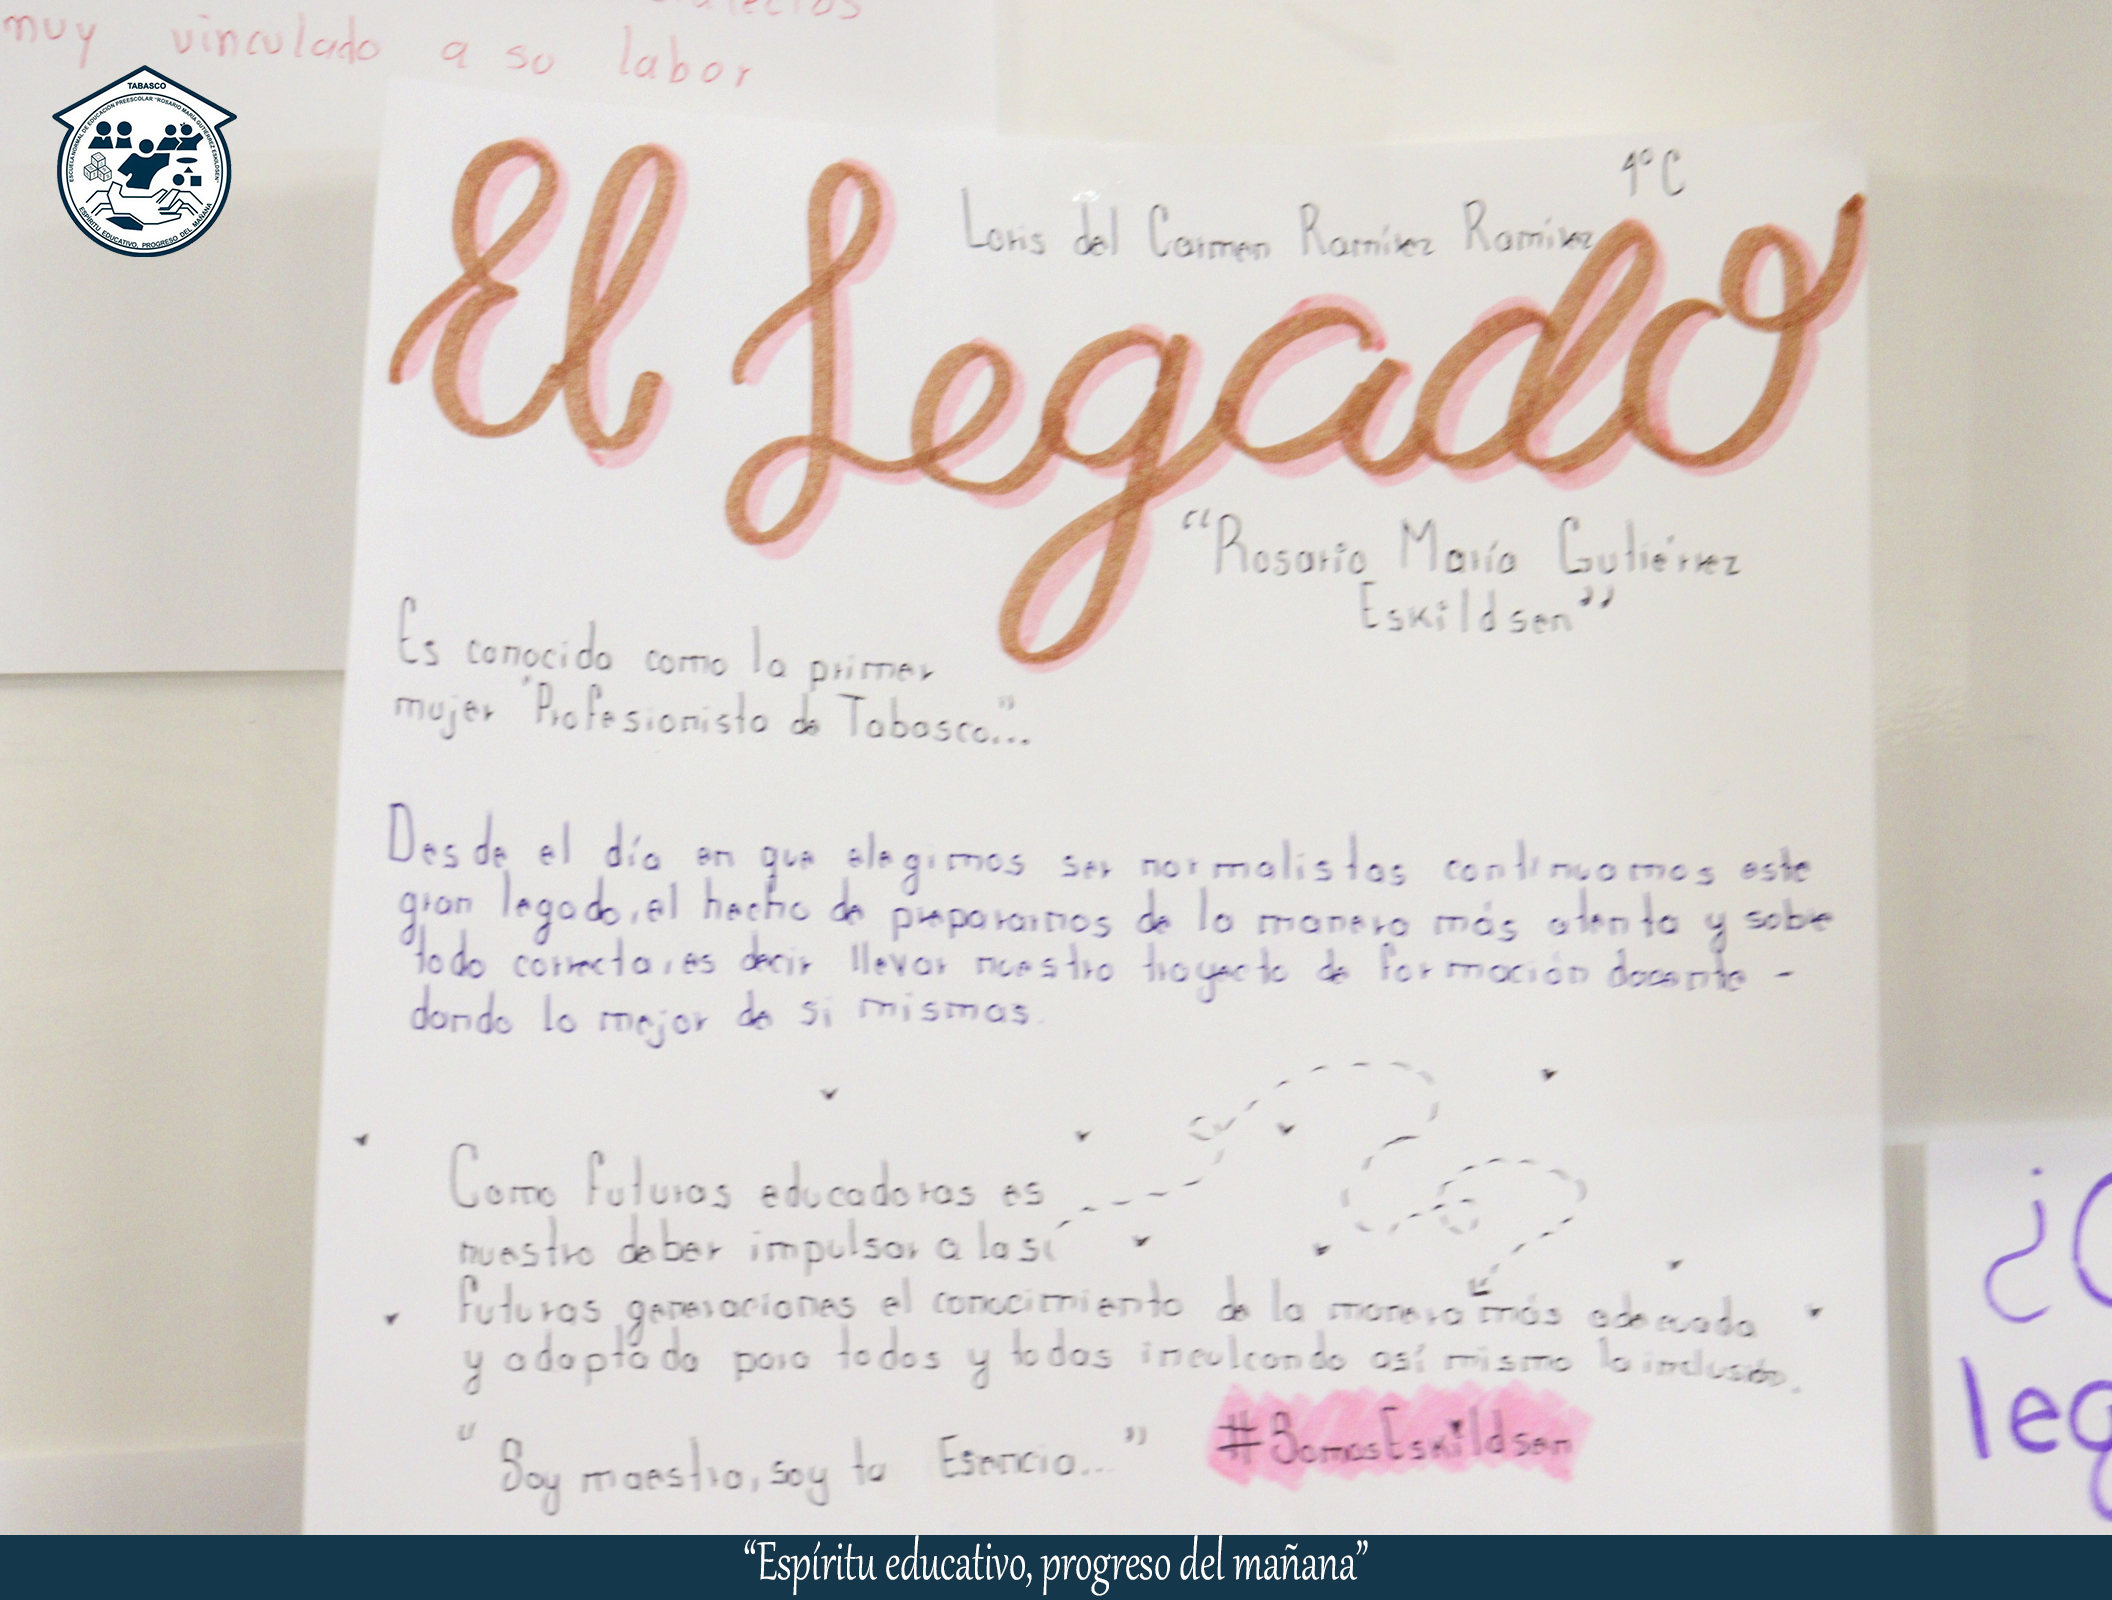 muy vinculado a su labor
TABASCO
ESCUELA NORMAL DE EDUCACIÓN PREESCOLAR "ROSARIO MARÍA GUTIÉRREZ ESKILDSEN"
ESPÍRITU EDUCATIVO, PROGRESO DEL MAÑANA
4° C
Loris del Carmen Ramírez Ramírez
El Legado
"Rosario María Gutiérrez
Eskildsen"
Es conocida como la primer
mujer "Profesionista de Tabasco"...
Desde el día en que elegimos ser normalistas continuamos este
gran legado, el hecho de prepararnos de la manera más atenta y sobre
todo correcta, es decir llevar nuestro trayecto de formación docente -
dando lo mejor de si mismas.
Como futuras educadoras es
nuestro deber impulsar a las
futuras generaciones el conocimiento de la manera más adecuada
y adaptada para todos y todas inculcando así mismo la inclusión.
"Soy maestra, soy tu Esencia..." #SomosEskildsen
leg
"Espíritu educativo, progreso del mañana"